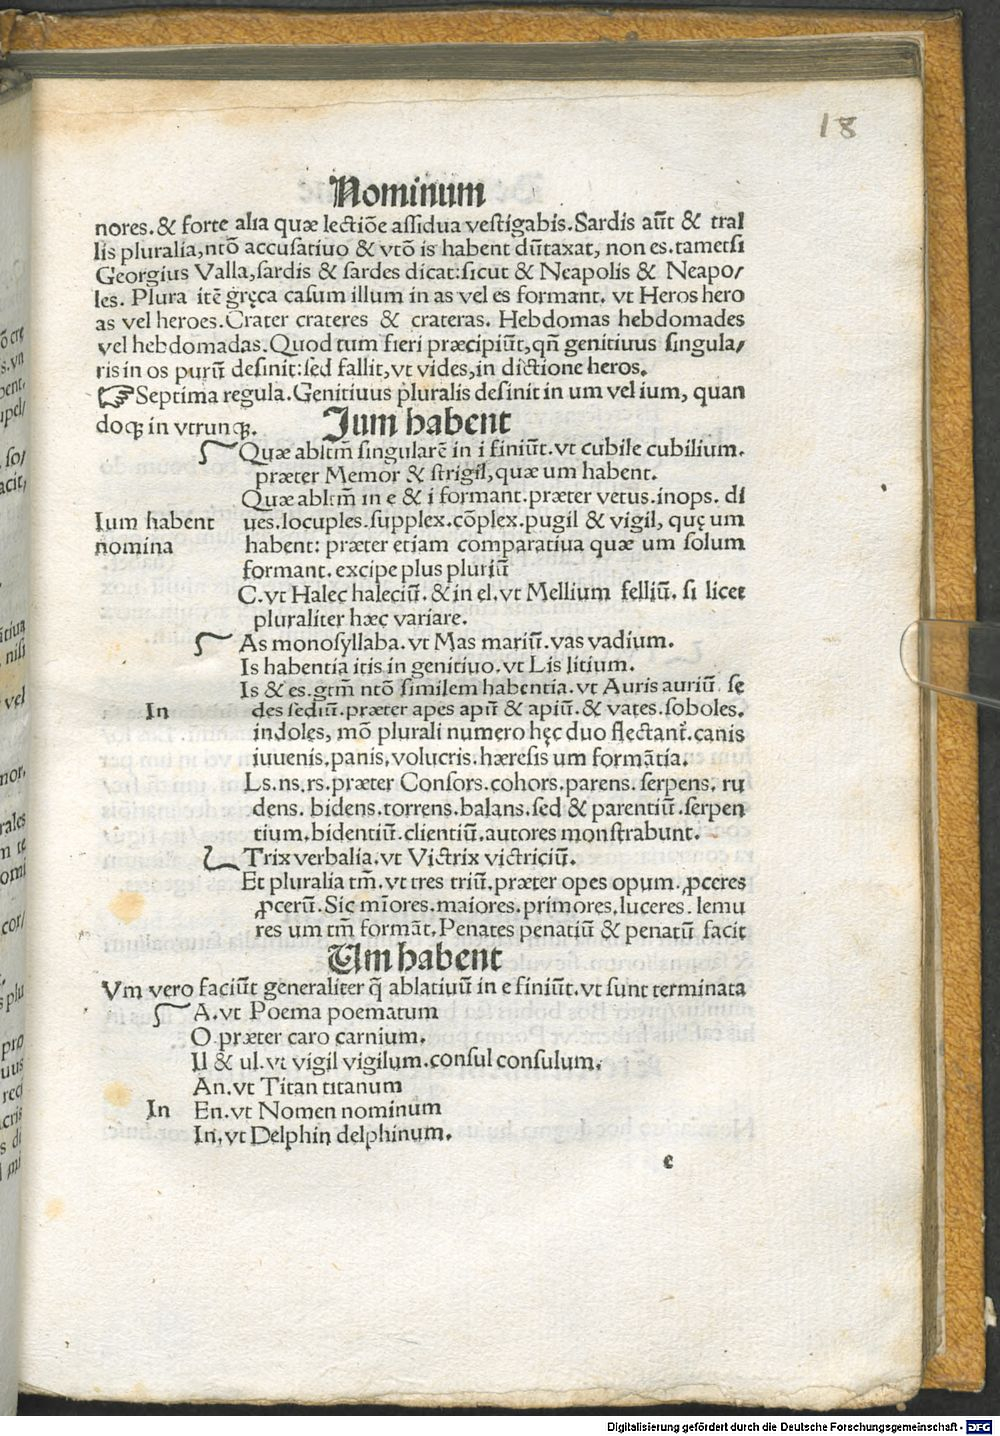 18
Nominum
nores.& forte alia quæ lectiōe assidua vestigabis.Sardis aūt & tral
lis pluralia,ntō accusatiuo & vtō is habent dūtaxat, non es.tametsi
Georgius Valla,sardis & sardes dicat:sicut & Neapolis & Neapo/
les. Plura itē gręca casum illum in as vel es formant. vt Heros hero
as vel heroes.Crater crateres & crateras. Hebdomas hebdomades
vel hebdomadas.Quod tum fieri præcipiūt,qñ genitiuus singula/
ris in os purū desinit:sed fallit,vt vides,in dictione heros.
☞Septima regula.Genitiuus pluralis desinit in um vel ium, quan
doqꝫ in vtrunqꝫ.
Ium habent
Quæ abltm̄ singularē in i finiūt.vt cubile cubilium.
præter Memor & strigil,quæ um habent.
Quæ abltm̄ in e & i formant.præter vetus.inops. di
Ium habent
nomina
ues.locuples.supplex.cōplex.pugil & vigil, quę um
habent: præter etiam comparatiua quæ um solum
formant.excipe plus pluriū
C.vt Halec haleciū.& in el.vt Mellium felliū. si licet
pluraliter hæc variare.
As monosyllaba.vt Mas mariū.vas vadium.
Is habentia itis in genitiuo.vt Lis litium.
Is & es.gtm̄ ntō similem habentia.vt Auris auriū. se
In
des sediū.præter apes apū & apiū.& vates.soboles.
indoles, mō plurali numero hęc duo flectant̄.canis
iuuenis.panis,volucris.hæresis um formātia.
Ls.ns.rs.præter Consors.cohors.parens.serpens. ru
dens. bidens.torrens.balans.sed & parentiū.serpen
tium.bidentiū.clientiū.autores monstrabunt.
Trix verbalia.vt Victrix victriciū.
Et pluralia tm̄.vt tres triū.præter opes opum.ꝓceres
ꝓcerū.Sic mīores.maiores.primores.luceres.lemu
res um tm̄ formāt.Penates penatiū & penatū facit
Um habent
Vm vero faciūt generaliter q̄ ablatiuū in e finiūt.vt sunt terminata
A.vt Poema poematum
O.præter caro carnium.
Il & ul.vt vigil vigilum.consul consulum.
An.vt Titan titanum
In
En.vt Nomen nominum
In.vt Delphin delphinum.
e
Digitalisierung gefördert durch die Deutsche Forschungsgemeinschaft - DFG